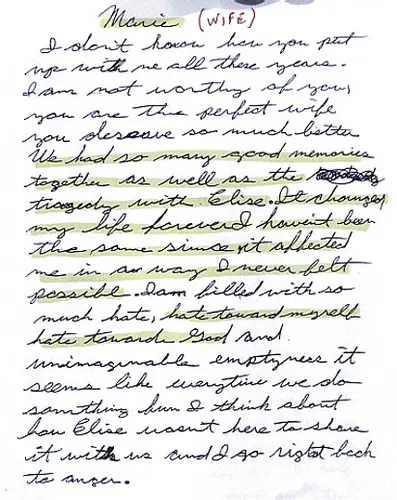 Marie (WIFE)
I don't know how you put
up with me all these years.
I am not worthy of you,
you are the perfect wife
you deserve so much better
We had so many good memories
together as well as the
tragedy with Elise. It changed
my life forever I haven't been
the same since it affected
me in a way I never felt
possible. I am filled with so
much hate, hate toward myself
hate towards God and
unimaginable emptyness it
seems like everytime we do
something fun I think about
how Elise wasn't here to share
it with us and I go right back
to anger.